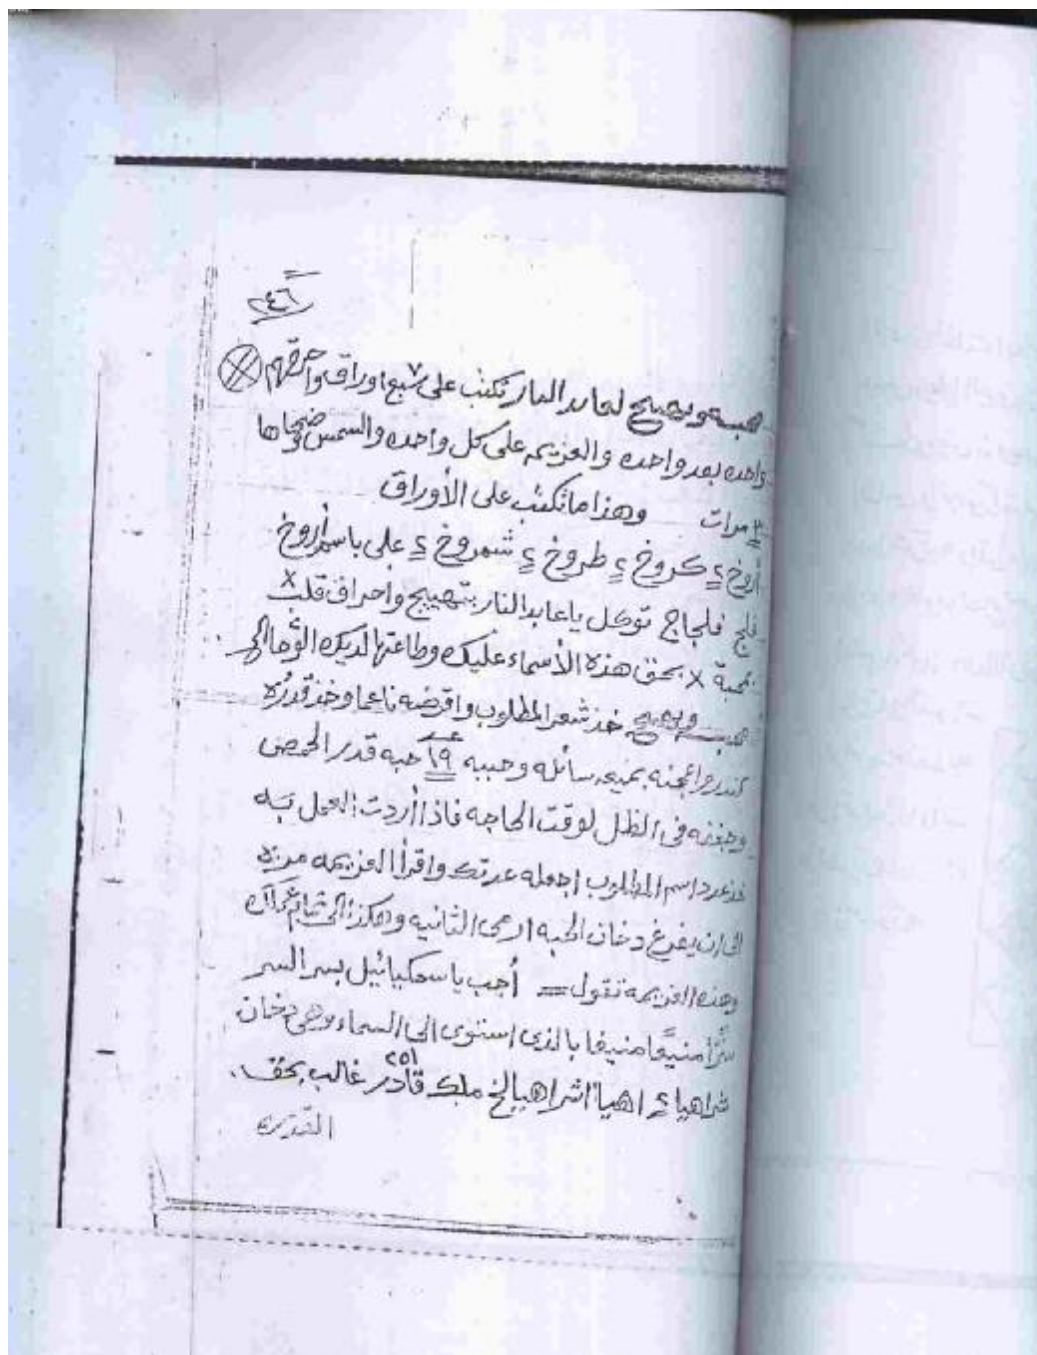 ٢٤٦
محبة وتهييج لعابد النار تكتب على سبع ٧ اوراق واحرقهم
واحده بعد واحده والعزيمه على كل واحده والشمس وضحاها
٣ مرات وهذا ما تكتب على الأوراق
أروخ ٤ كروخ ٤ طروخ ٤ شمروخ ٤ على باسم أروخ
فلج فلجاج توكل يا عابد النار بتهييج واحراق قلب x
بمحبة x بحق هذه الأسماء عليك وطاعتها لديك الوحا الخ
محبه وتهييج خذ شعر المطلوب واقرضه ناعما وخذ قدره
كندر واعجنه بميعه سائله وحببه ١٩ حبه قدر الحمص
وجففه فى الظل لوقت الحاجه فاذا أردت العمل به
خذ عدد اسم المطلوب اجعله عدتك واقرأ العزيمه مره
الى ان يفرغ دخان الحبه ارمى الثانيه وهكذا الى تمام عملك
وهذه العزيمه تقول = أجب يا سمكيائيل بسر السر
سرًا منيعًا منيفا بالذى استوى الى السماء وهى دخان
شراهيا ٤ اهيا اشراهيا الخ ملك قادر ٢٥١ غالب بحق
القدره